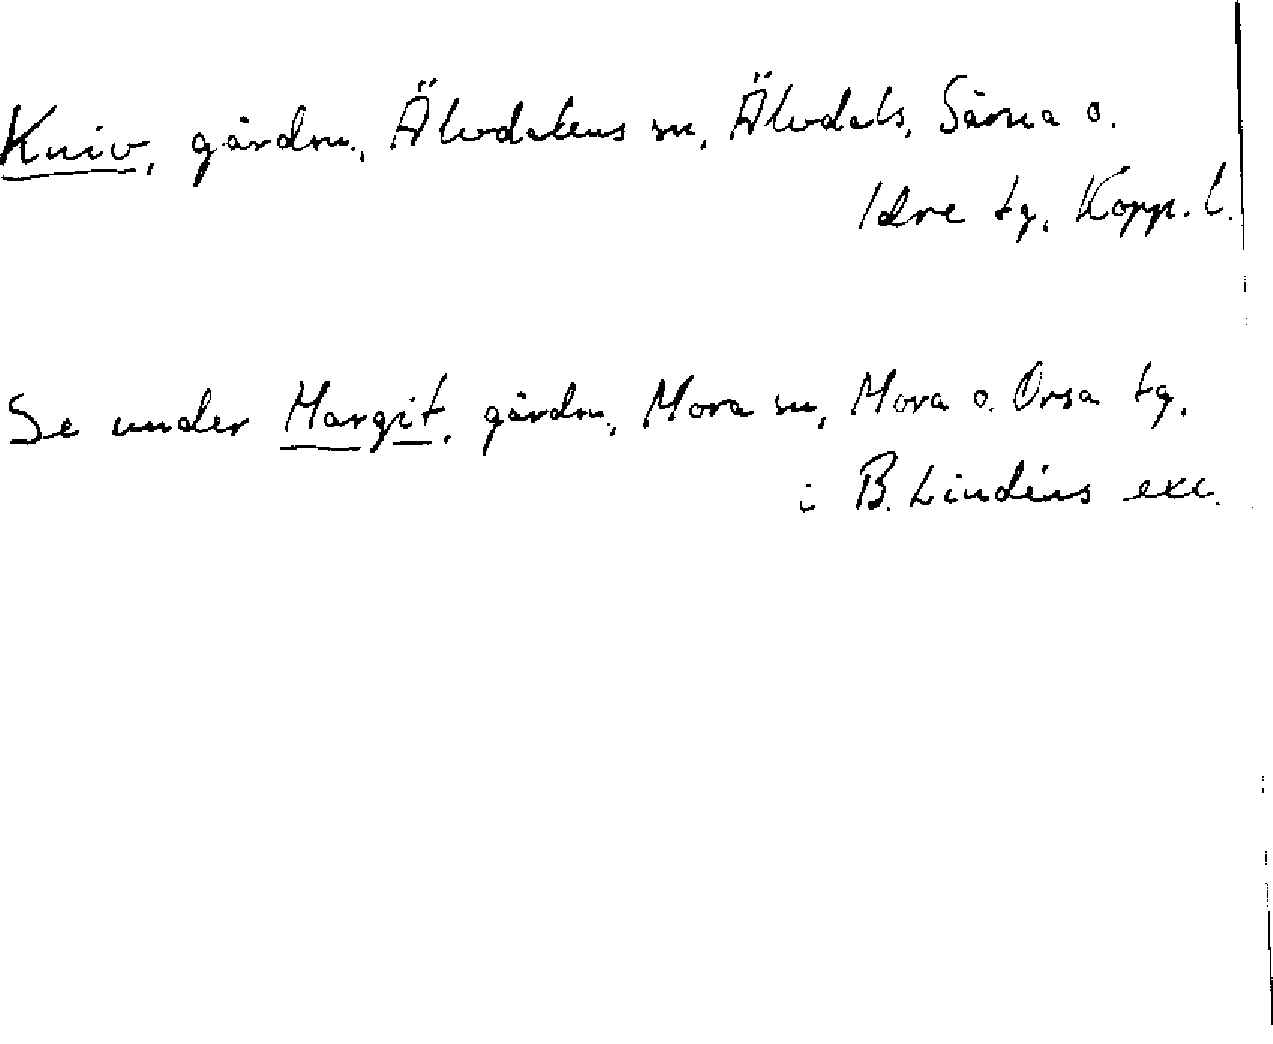 Kniv, gårdn., Älvdalens sn, Älvdals, Särna o.
Idre tg, Kopp. l.
Se under Margit, gårdn., Mora sn, Mora o. Orsa tg,
i B. Lindéns exc.